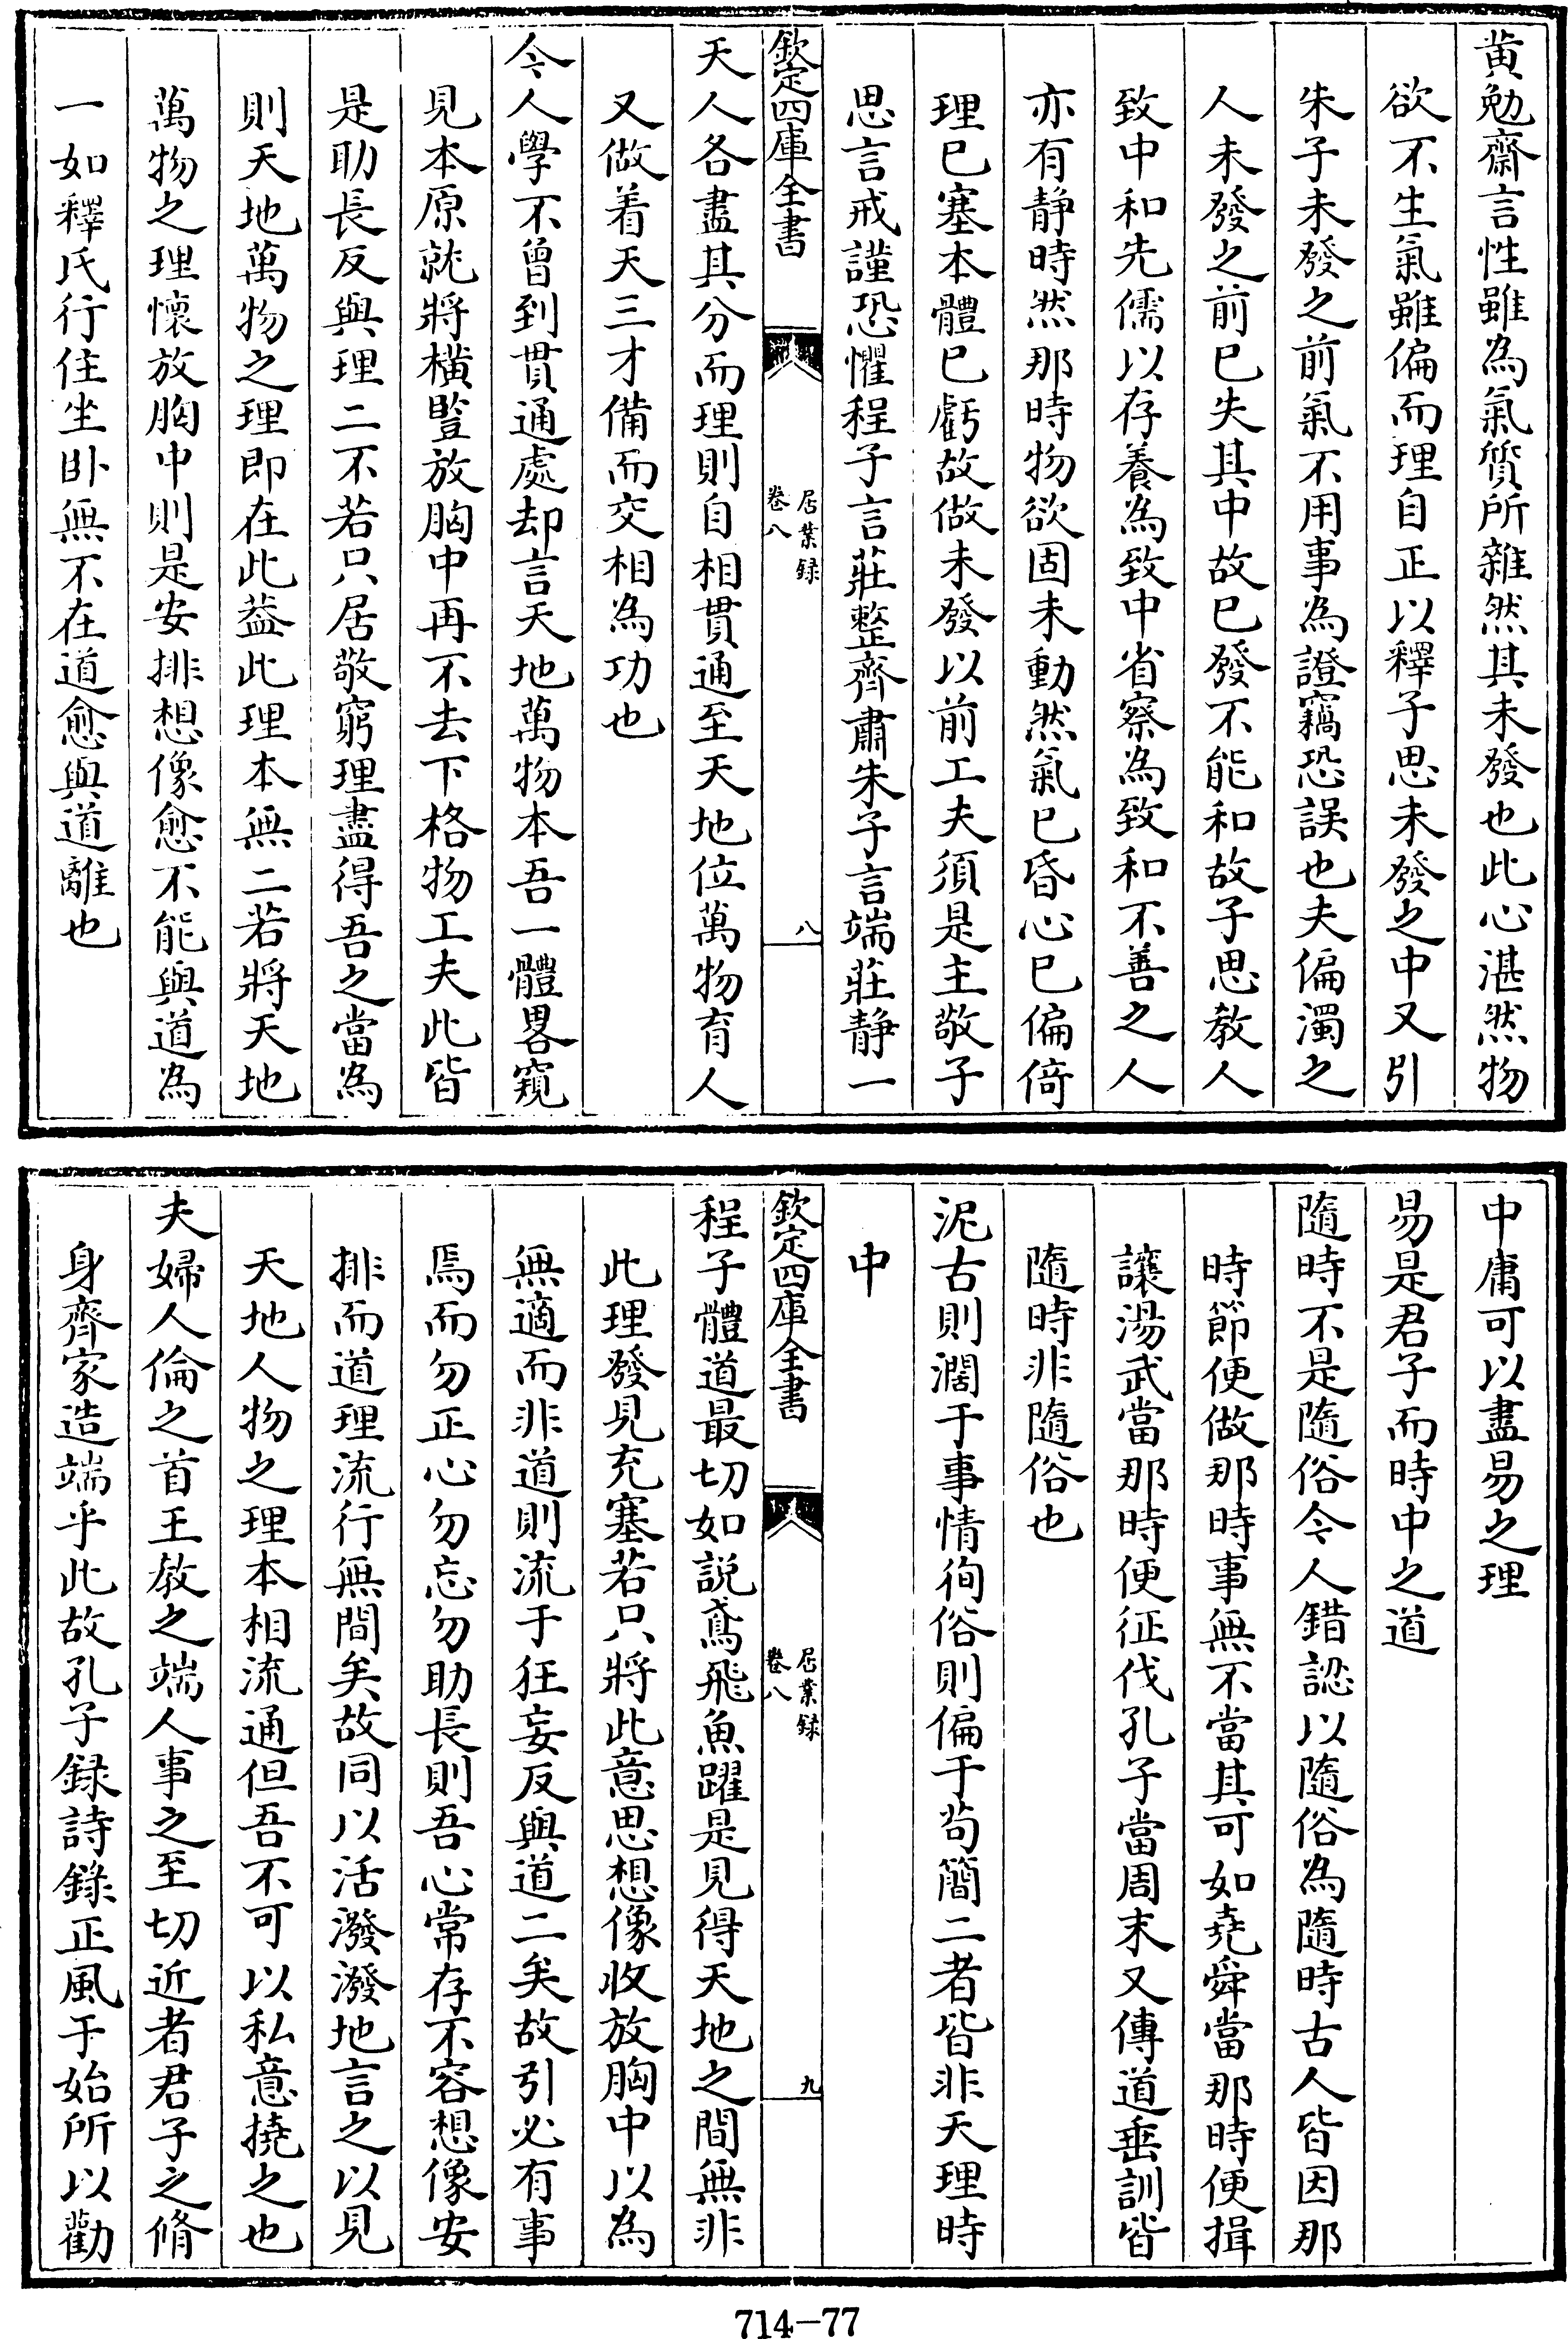 黄勉齋言性雖為氣質所雜然其未發也此心湛然物
欲不生氣雖偏而理自正以釋子思未發之中又引
朱子未發之前氣不用事為證竊恐誤也夫偏濁之
人未發之前已失其中故已發不能和故子思教人
致中和先儒以存養為致中省察為致和不善之人
亦有静時然那時物欲固未動然氣已昏心已偏倚
理已塞本體已虧故做未發以前工夫須是主敬子
思言戒謹恐懼程子言莊整齊肅朱子言端莊静一
欽定四庫全書
居業録
卷八
八
天人各盡其分而理則自相貫通至天地位萬物育人
又做着天三才備而交相為功也
今人學不曾到貫通處却言天地萬物本吾一體畧窺
見本原就將橫豎放胸中再不去下格物工夫此皆
是助長反與理二不若只居敬窮理盡得吾之當為
則天地萬物之理即在此葢此理本無二若將天地
萬物之理懷放胸中則是安排想像愈不能與道為
一如釋氏行住坐卧無不在道愈與道離也
中庸可以盡易之理
易是君子而時中之道
隨時不是隨俗今人錯認以隨俗為隨時古人皆因那
時節便做那時事無不當其可如堯舜當那時便揖
讓湯武當那時便征伐孔子當周末又傳道垂訓皆
隨時非隨俗也
泥古則濶于事情徇俗則偏于茍簡二者皆非天理時
中
欽定四庫全書
居業録
卷八
九
程子體道最切如説鳶飛魚躍是見得天地之間無非
此理發見充塞若只將此意思想像收放胸中以為
無適而非道則流于狂妄反與道二矣故引必有事
焉而勿正心勿忘勿助長則吾心常存不容想像安
排而道理流行無間矣故同以活潑潑地言之以見
天地人物之理本相流通但吾不可以私意撓之也
夫婦人倫之首王教之端人事之至切近者君子之脩
身齊家造端乎此故孔子録詩錄正風于始所以勸
714-77